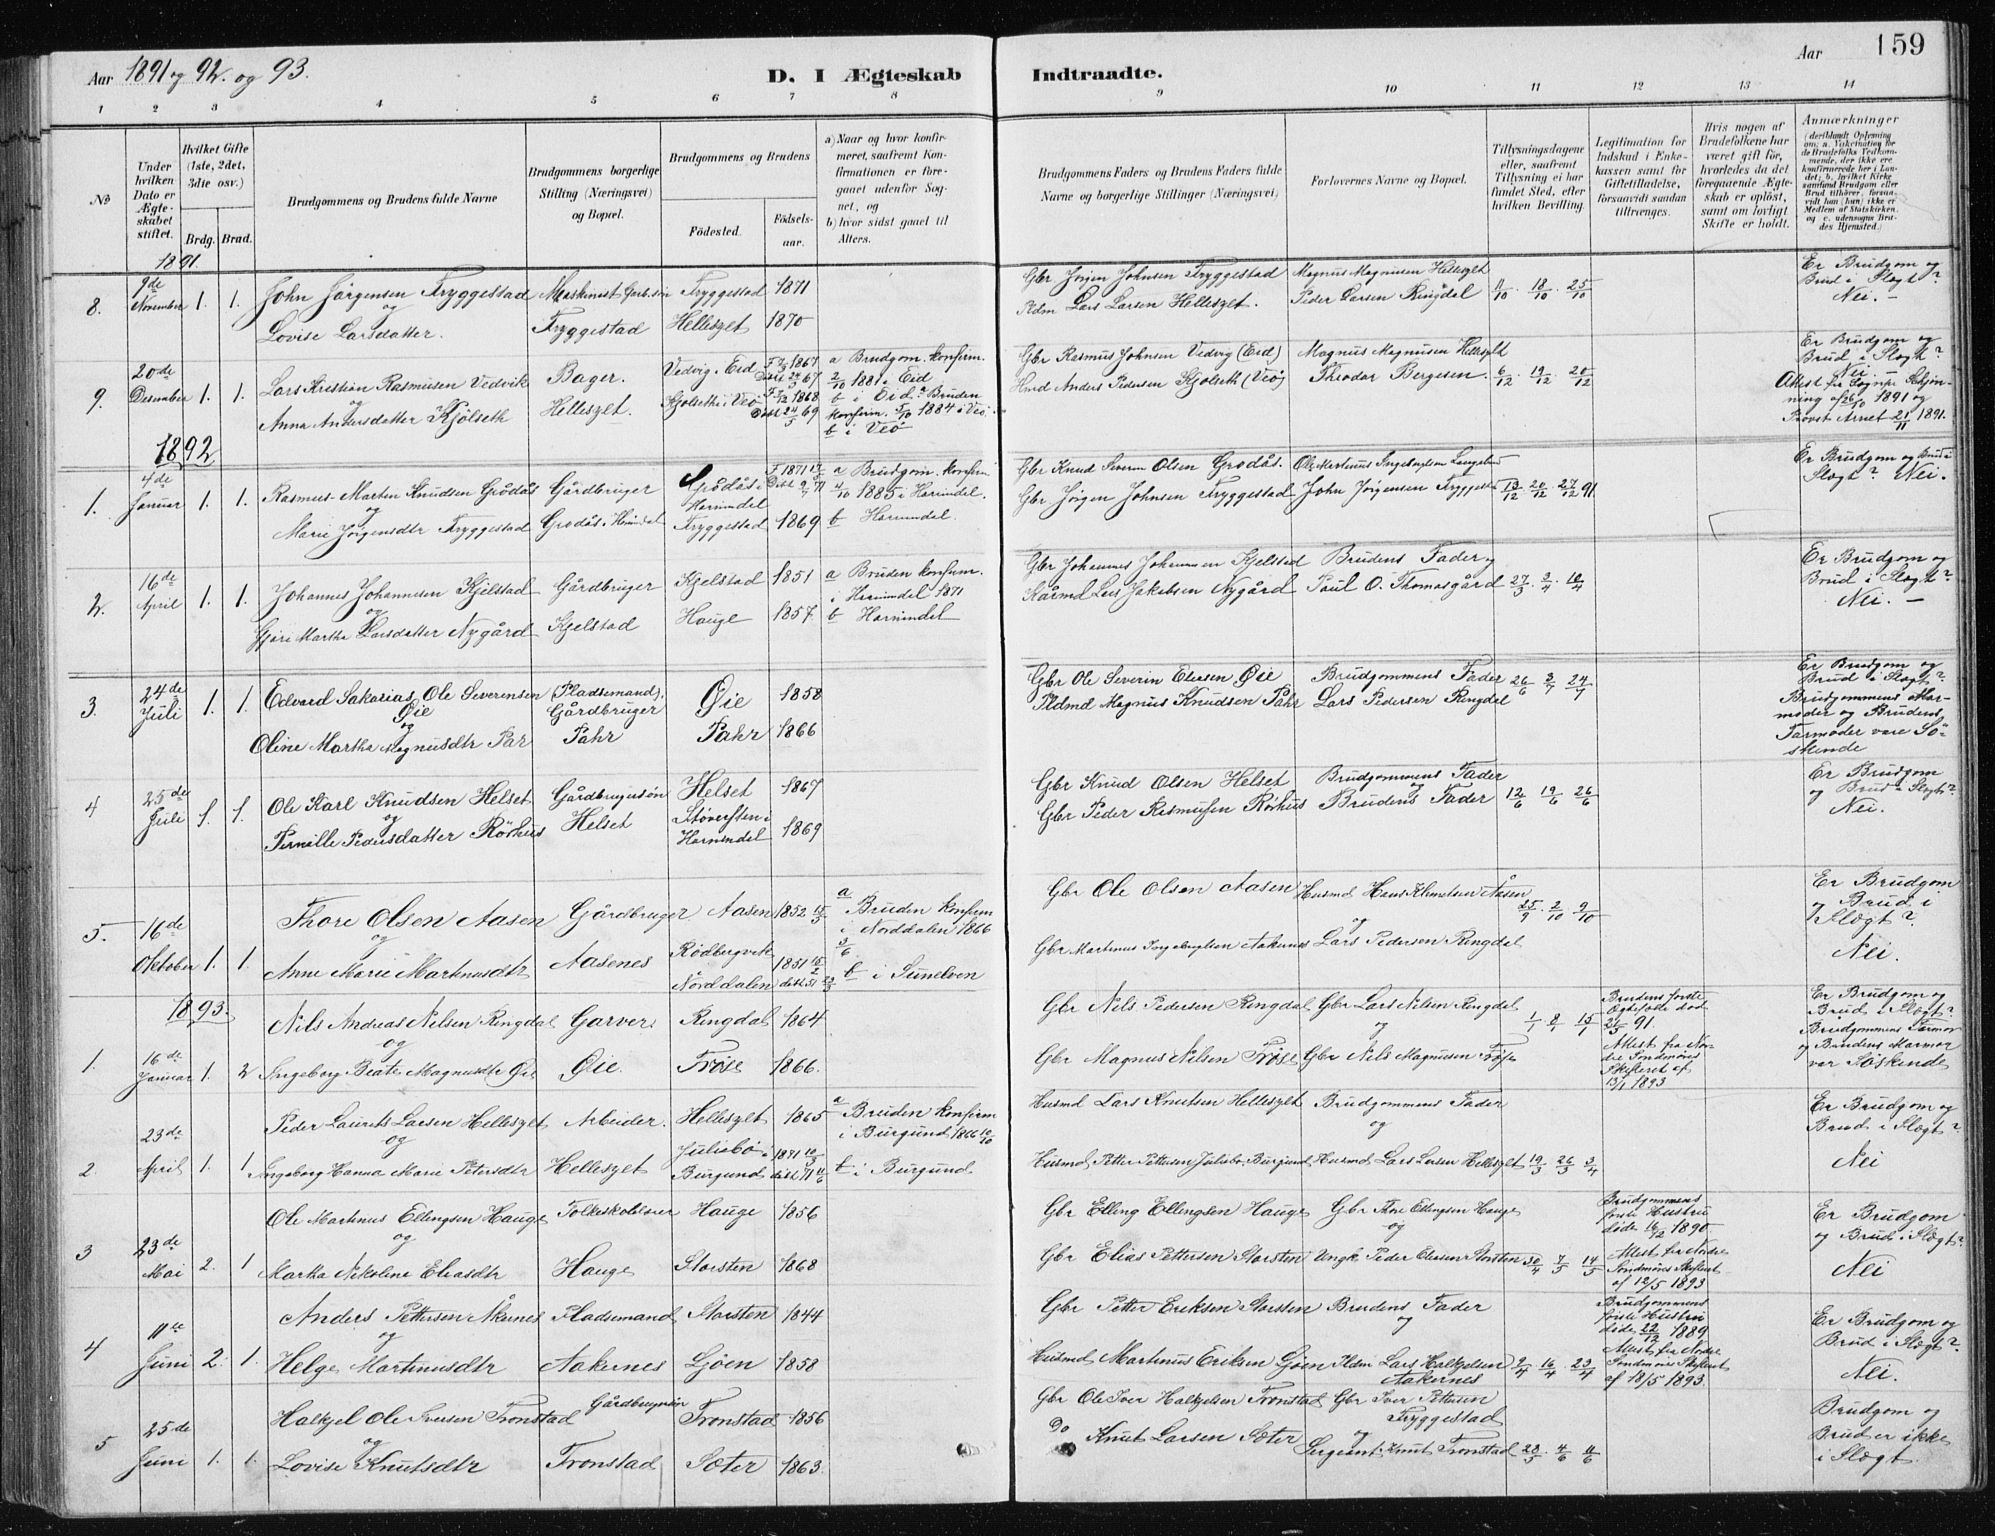 Aar 1891 og 92. og 93.
D. I Ægteskab
Indtraadte.
Aar
159
1 2 3 4 5 6 7 8 9 10 11 12 13 14
No
Under hvilken Dato er Ægteskabet stiftet.
Hvilket Gifte (1ste, 2det, 3die osv.)
Brdg. Brud.
Brudgommens og Brudens fulde Navne
Brudgommens borgerlige Stilling (Næringsvei) og Bopæl.
Brudgommens og Brudens
Fødested.
Fødsels-aar.
a) Naar og hvor konfirmeret, saafremt Konfirmationen er foregaaet udenfor Sognet, og
b) hvor sidst gaaet til Alters.
Brudgommens Faders og Brudens Faders fulde Navne og borgerlige Stillinger (Næringsvei)
Forlovernes Navne og Bopæl.
Tillysningsdagene eller, saafremt Tillysning ei har fundet Sted, efter hvilken Bevilling.
Legitimation for Indskud i Enkekassen samt for Giftetilladelse, forsaavidt saadan tiltrænges.
Hvis nogen af Brudefolkene har været gift før, hvorledes da det foregaaende Ægteskab er opløst, samt om lovligt Skifte er holdt.
Anmærkninger
(deriblandt Oplysning om: a. Vakcination for de Brudefolks Vedkommende, der ikke ere konfirmerede her i Landet; b. hvilket Kirkesamfund Brudgom eller Brud tilhører, forsaavidt han (hun) ikke er Medlem af Statskirken, og c. udensogns Brudes Hjemsted.)
1891.
8. 9de November 1. 1.
John Jørgensen Tryggestad
og
Lovise Larsdatter.
Maskinist Garb.søn
Tryggestad
Tryggestad 1871
Hellesylt 1870
Gbr Jørgen Johnsen Tryggestad
Pldm Lars Larsen Hellesylt.
Magnus Magnusen Hellesylt
Peder Larsen Ringdal
11/10 18/10 25/10
Er Brudgom og
Brud i Slægt?
Nei. –
9. 20de Desember 1. 1.
Lars Kristian Rasmusen Vedvik
og
Anna Andersdatter Kjölseth
Bager.
Hellesylt.
Vedvig i Eid
Skjolseth i Veö
a Brudgom. konfirm.
2/10 1881 i Eid
b i Eid. a Bruden
konfirm. 5/10 1884 i Veö.
b i Veö
Gbr Rasmus Johnsen Vedvig (Eid)
Hmd Anders Pedersen Skjolseth (Veö)
Magnus Magnusen Hellesylt
Theodor Bergesen.
6/12 19/12 20/12
Er Brudgom og
Brud i Slægt?
Nei. –
Attest fra Sognpr.
26/10 1891 og
Provst Arnet 21/11 1891.
1892
1. 4de Januar 1. 1.
Rasmus Martin Knudsen Grodås
og
Marie Jørgensdtr Tryggestad
Gårdbruger
Grodås i Hornindal
Grodås i
Hornindal
Tryggestad 1869
a Brudgom. konfirm
4/10 1885 i Hornindal.
b Hornindal.
Gbr Knud Severin Olsen Grodås.
Gbr Jørgen Johnsen Tryggestad
John Jørgensen Tryggestad
13/12 20/12 27/12 91
Er Brudgom og Brud i
Slægt? Nei.
2. 16de April 1. 1.
Johannes Johannesen Kjelstad
og
Gjøri Martha Larsdatter Nygård
Gårdbruger
Kjelstad
Kjelstad 1851
Hauge 1857.
a Bruden konfirm.
i Hornindal 1871
b Hornindal
Gbr Johannes Johannesen Kjelstad
Kårmd Lars Jakobsen Nygård
Brudens Fader og
Paul O. Thomasgård
27/3 3/4 10/4
Er Brudgom og
Brud i Slægt?
Nei. –
3. 24de Juli 1. 1.
Edvard Sakarias Ole Severensen
Øie
og
Oline Martha Magnusdtr Par
(Pladsemand).
Gårdbruger
Pahr
Øie 1858
Pahr 1866
Gbr Ole Severin Elesen Øie
Pldmd Magnus Knudsen Pahr
Brudgommens Fader
Lars Pedersen Ringdal
26/6 3/7 24/7
Er Brudgom og
Brud i Slægt?
Brudgommens Mormoder og Brudens
Farmoder vare Söskende
4 25de Juli 1. 1.
Ole Karl Knudsen Helset
og
Pernille Pedersdatter Rörhus
Gårdbrugersön
Helset
Helset 1867
Støversten i
Hornindal 1869
Gbr Knud Olsen Helset
Gbr Peder Rasmusen Rörhus
Brudgommens Fader
og
Brudens Fader
12/6 19/6 26/6
Er Brudgom
og Brud i Slægt?
Nei.
5. 16de Oktober 1. 1.
Thore Olsen Aasen
og
Anne Marie Martinusdtr
Gårdbruger
Aasenes
Aasen 1852
Rödbergvik
Norddalen 1851
a Bruden konfirm
i Norddalen 1866
3/6
b i Sunelven
Gbr Ole Olsen Aasen
Gbr Martinus Ingebrigtsen Aakernes
Husmd Hans Klemetsen Åasen
og
Lars Pedersen Ringdal
25/9 2/10 9/10
Er Brudgom
og Brud i
Slægt?
Nei.
1893.
1. 16de Januar 1. 2
Nils Andreas Nilsen Ringdal
og
Ingeborg Beate Magnusdtr Øie
Garver
Øie.
Ringdal 1864
Frøise 1866.
Gbr Nils Pedersen Ringdal
Gbr Magnus Nilsen Frøise
Gbr Lars Nilsen Ringdal
og
Gbr Nils Magnusen Frøise
1/1 8/1 15/1
Brudens förste
Ægtefælle död
91.
Attest fra Nordre Söndmöres
Skifteret af
13/1 1893
Er Brudgom og
Brud i Slægt?
Brudgommens Farmor
og Brudens Mormor
var Söskende
2 23de April 1. 1
Peder Laurits Larsen Hellesylt
og
Ingeborg Hanna Marie Petersdtr
Arbeider.
Hellesylt
Hellesylt 1865
Juliebö i
Burgund
a Bruden konfirm
i Burgund
b i Burgund
Husmd Lars Knutsen Hellesylt
Husmd Petter Pettersen Juliebö. Burgund
Brudgommens Fader
og
Husmd Lars Larsen Hellesylt
19/3 26/3 3/4
Er Brudgom og
Brud i Slægt?
Nei
3 23de Mai 2. 1
Ole Martinus Ellingsen Hauge
og
Martha Nikoline Eliasdtr
Folkeskolelærer
Hauge
Hauge 1856
Storsten 1868
Gbr Elling Ellingsen Hauge
Gbr Elias Pettersen Storsten
Gbr Thore Ellingsen Hauge
og
Ungk Peder Eliesen Storsten
30/4 7/5 14/5
Brudgommens
förste Hustru
döde 16/12 1890
Attest fra Nordre
Söndmöres Skifteret
af 12/5 1893
Er Brudgom
og Brud i Slægt?
Nei
4 11te Juni 2. 1.
Anders Pettersen Åkernes
og
Helge Martinusdtr
Pladsemand
Aakernes
Storsten 1844
Ljöen 1858
Gbr Petter Eriksen Storsten
Husmd Martinus Eriksen Ljöen
Brudens Fader
og
Pldm Lars Halkjelsen
Aakernes
9/4 16/4 23/4
Brudgommens
förste Hustru
döde 22/12 1889
Attest fra Nordre
Söndmöres Skifteret
af 18/5 1893.
Er Brudgom og
Brud i Slægt?
Nei.
5 25de Juni 1. 1.
Halkjel Ole Iversen Tronstad
og
Lovise Knutsdtr
Gårdbrugersön
Tronstad
Tronstad 1856
Sæter 1863.
Gbr Ole Iver Halkjelsen Tronstad
Do Knut Larsen Sæter
Gbr Iver Pettersen
Tryggestad
og
Sergeant Knut Tronstad
28/5 4/6 11/6
Brudgom og
Brud er ikke
i Slægt.